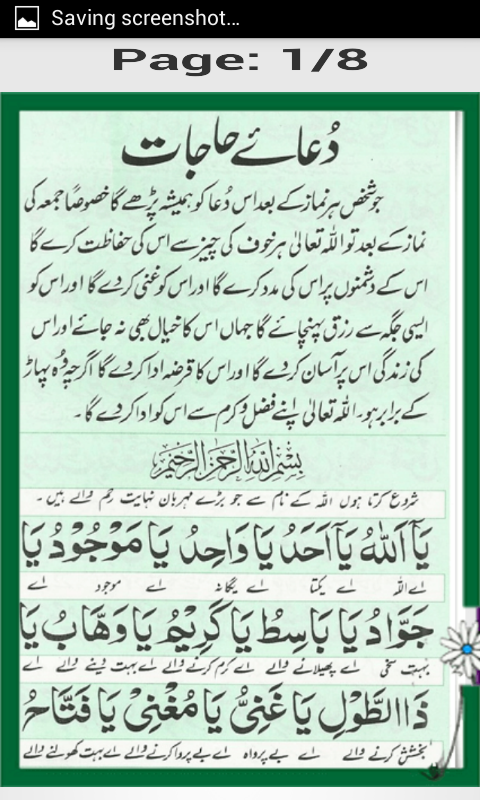 Saving screenshot...
Page: 1/8
دُعائے حاجات
جو شخص ہر نماز کے بعد اس دُعا کو ہمیشہ پڑھے گا خصوصاً جمعہ کی
نماز کے بعد تو اللہ تعالیٰ ہر خوف کی چیز سے اس کی حفاظت کرے گا
اس کے دشمنوں پر اس کی مدد کرے گا اور اس کو غنی کر دے گا اور اس کو
ایسی جگہ سے رزق پہنچائے گا جہاں اس کا خیال بھی نہ جائے اور اس
کی زندگی اس پر آسان کر دے گا اور اس کا قرضہ ادا کر دے گا اگرچہ وُہ پہاڑ
کے برابر ہو۔ اللہ تعالیٰ اپنے فضل و کرم سے اس کو ادا کر دے گا۔
بِسْمِ اللهِ الرَّحْمٰنِ الرَّحِيْمِ
شروع کرتا ہوں اللہ کے نام سے جو بڑے مہربان نہایت رحم والے ہیں۔
يَآ اَللهُ يَآ اَحَدُ يَا وَاحِدُ يَا مَوْجُوْدُ يَا
اے اللہ اے یکتا اے یگانہ اے موجود اے
جَوَّادُ يَا بَاسِطُ يَا كَرِيْمُ يَا وَهَّابُ يَا
بہت سخی اے پھیلانے والے اے کرم کرنے والے اے بہت دینے والے اے
ذَا الطَّوْلِ يَا غَنِيُّ يَا مُغْنِيْ يَا فَتَّاحُ
بخشش کرنے والے اے بے پرواہ اے بے پروا کرنے والے اے بہت کھولنے والے